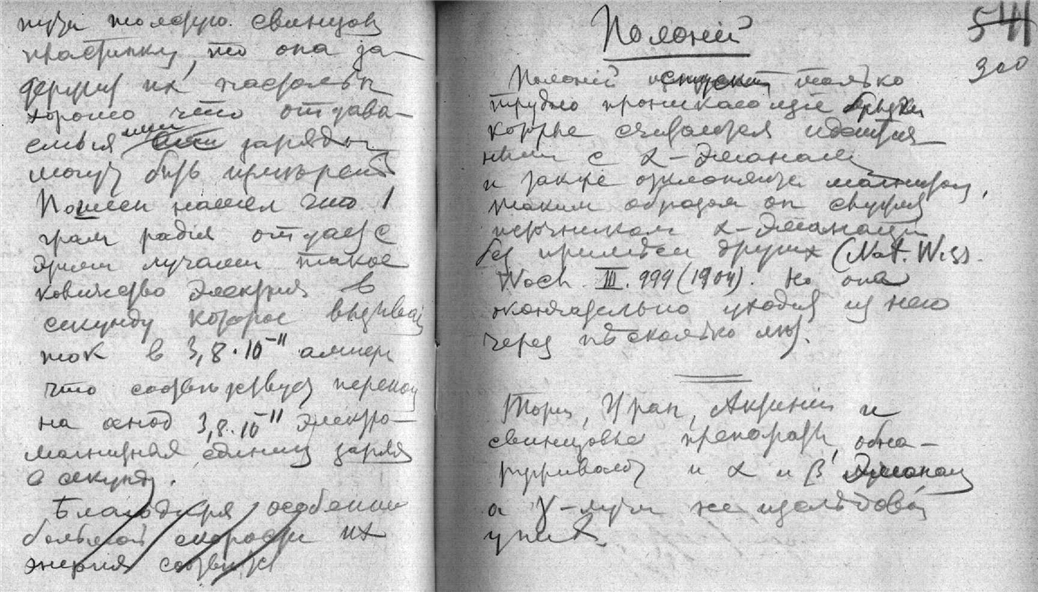 пути толстую свинцов
пластинку, то она за-
держит их настолько
хорошо что отдава-
емыя ими заряды
могут быть измерены
нашел что 1
грам радія отдает с
этими лучами такое
количество электрич в
секунду которое вызывает
ток в 3,8·10⁻¹¹ ампер
что соответствует
на анод 3,8·10⁻¹¹ электро-
магнитная единиц заряда
в секунду.
Благодаря особенно
большой скорости их
энергия соответст
541
300
Полоній
Полоній испускает только
трудно проникающіе
которые считаются идентич
ными с α-эманац
и также отклоняются магнитом,
таким образом он служит
источником α-эманаціи
без примеси других (Nat. Wiss.
Woch. III. 999 (1904). Но она
окончательно уходит из него
через несколько лет.
Торій, Уран, Актиній и
свинцовые препараты обна-
руживают и α и β эманац
а γ-лучи не изследованы
у них.